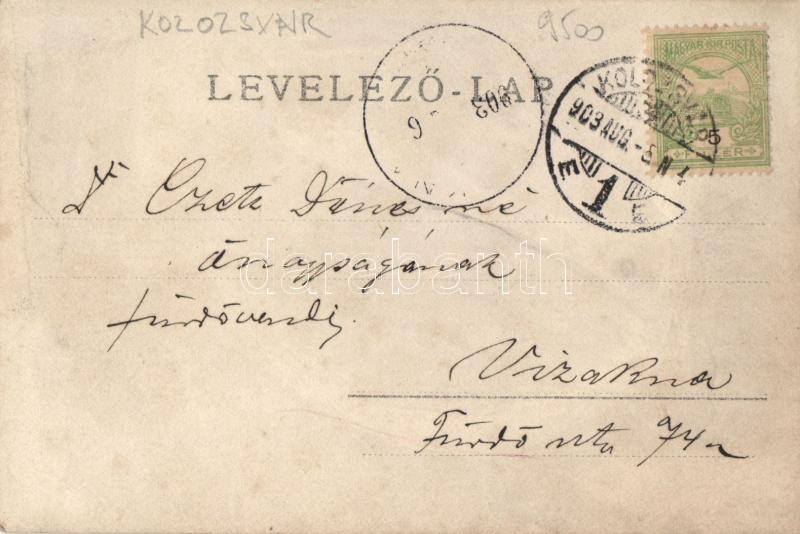 KOLOZSVÁR
9500
MAGYAR KIR. POSTA
5
FILLÉR
LEVELEZŐ-LAP
903 AUG. -5 N 4
E 1 E
903
6
Dr. Czetz Dénesné
őnagyságának
fürdővendég.
darabanth
Vizakna
Fürdő utca 74